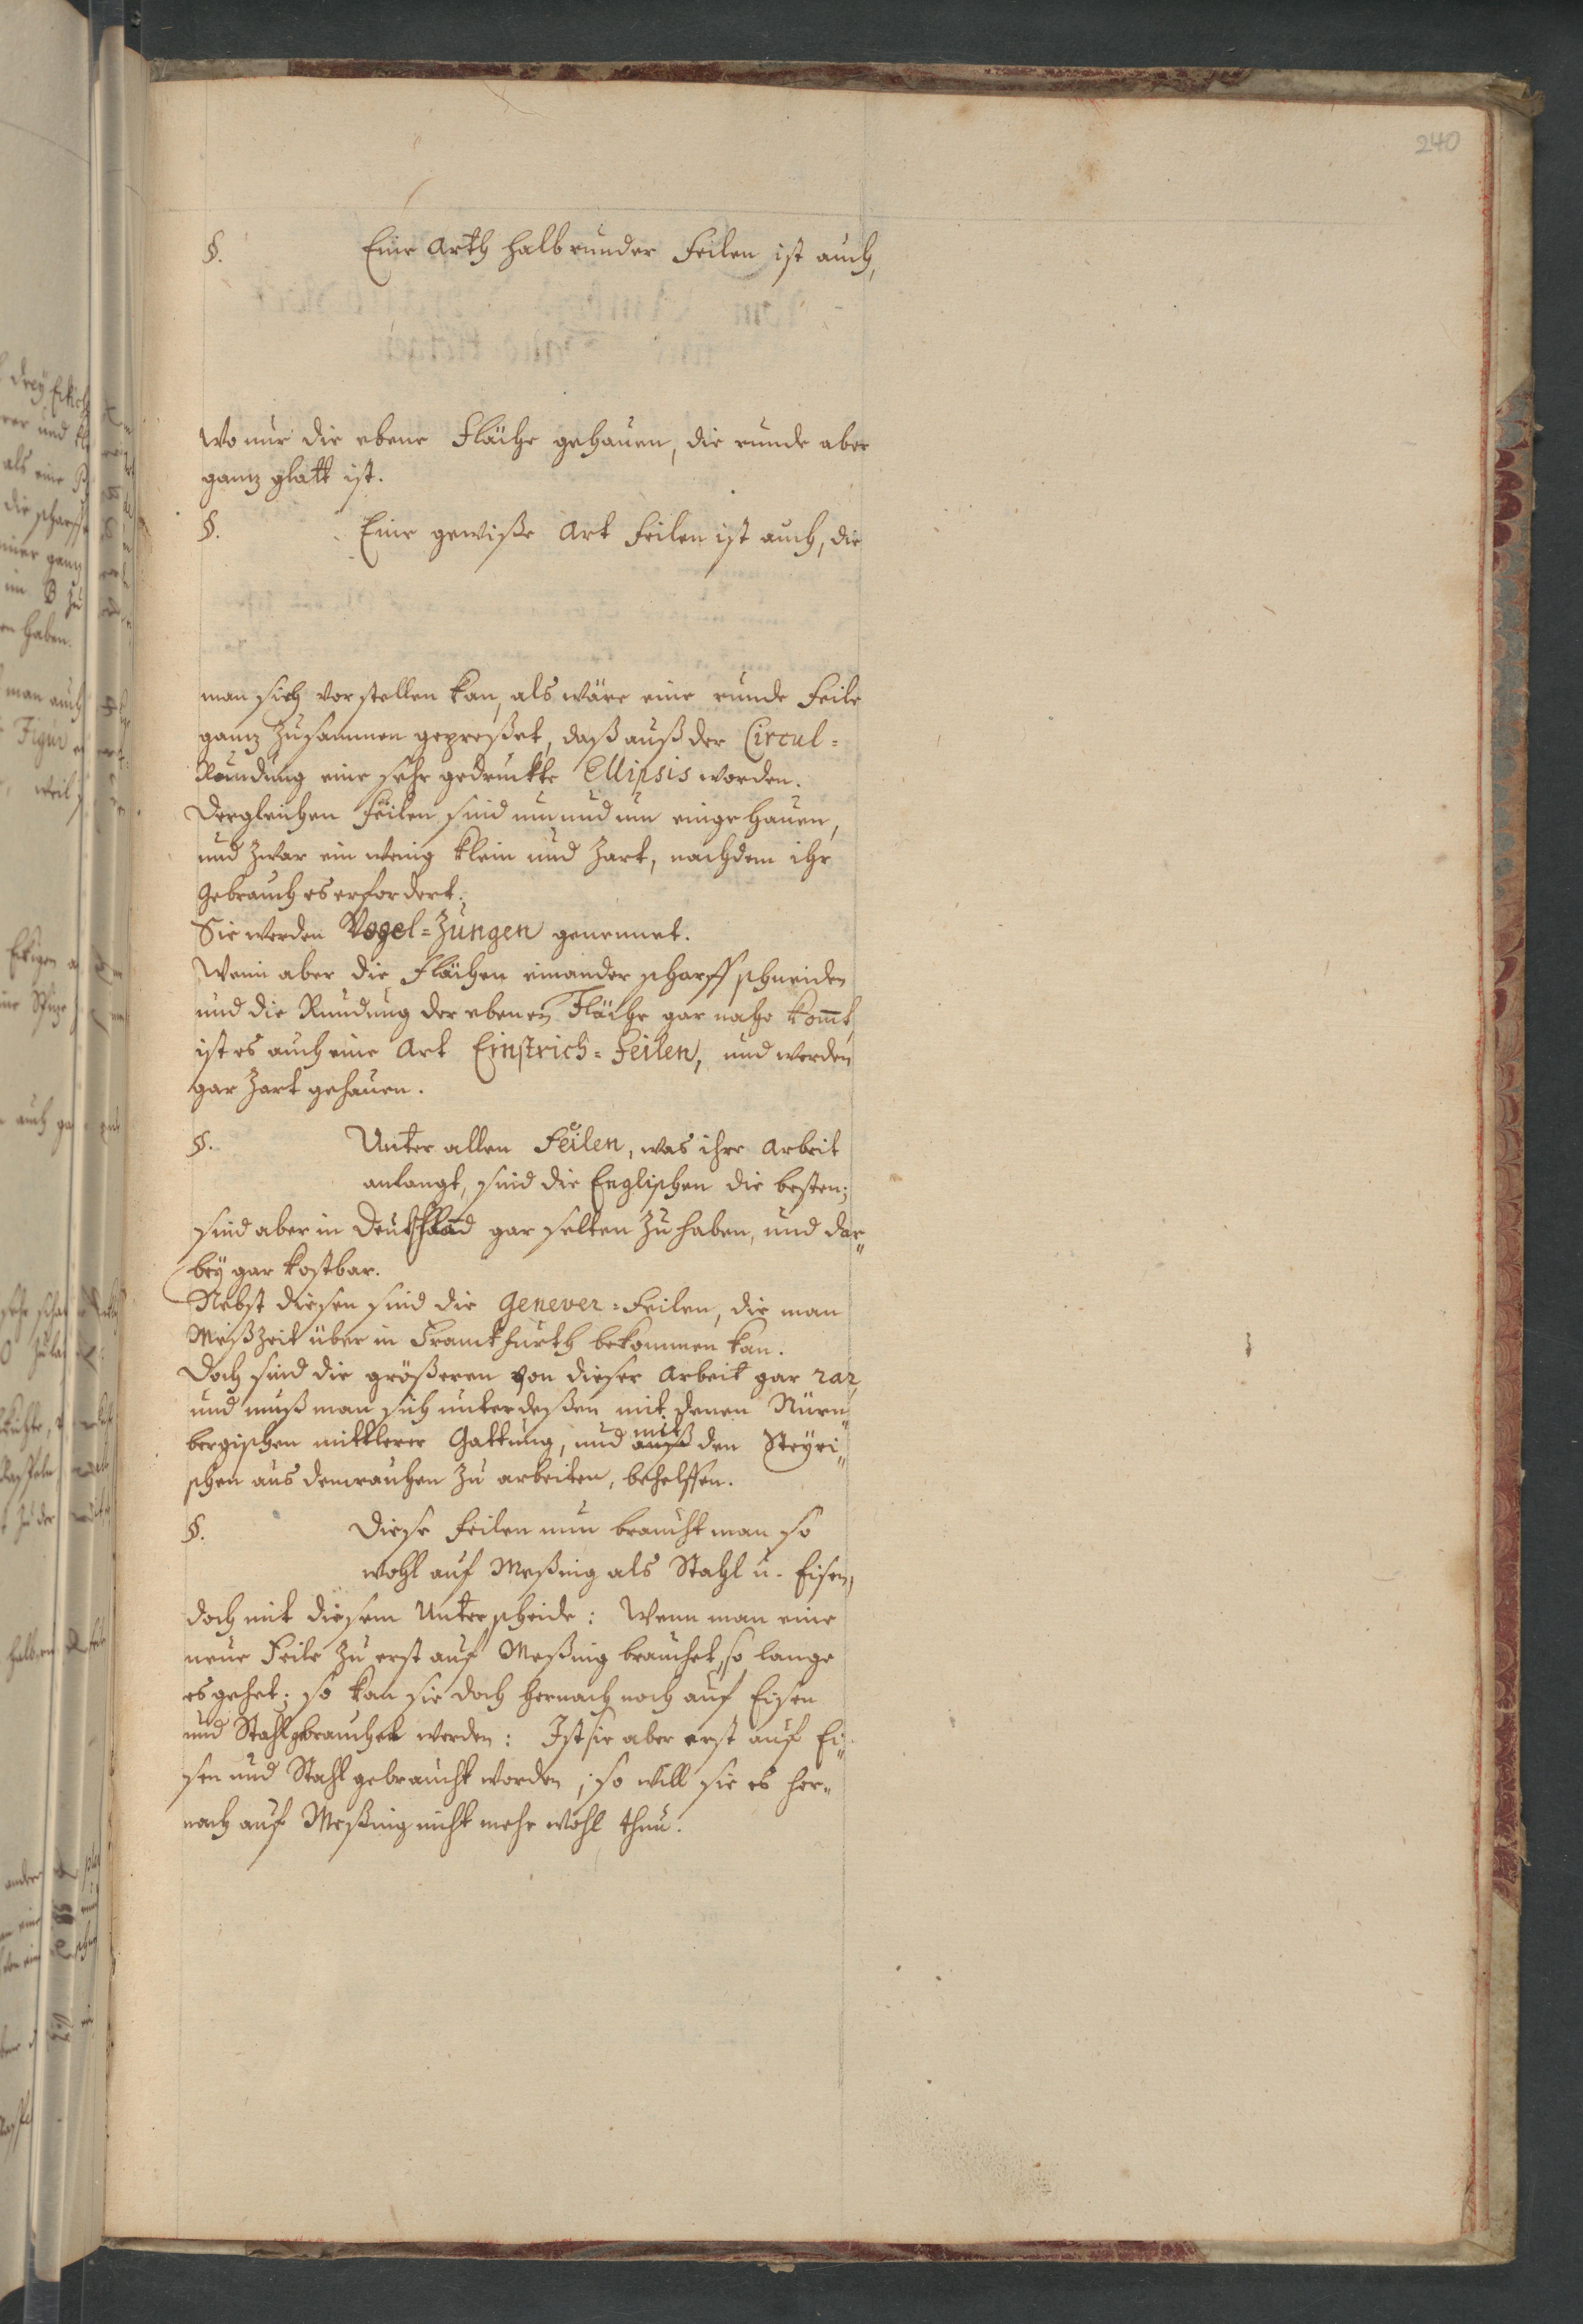 240
§. Eine Arth halbrunder Feilen ist auch,
wo nur die ebene Fläche gehauen, die runde aber
ganz glatt ist.
§. Eine gewiße Art Feilen ist auch, die
man sich vorstellen kan, als wäre eine runde Feile
ganz zusammen gepreßet, daß auß der Circul-
Rundung eine sehr gedruckte Ellipsis worden.
Dergleichen Feilen sind um und um eingehauen,
und zwar ein wenig klein und zart, nachdem ihr
Gebrauch es erfordert.
Sie werden Vogel-Zungen genennet.
Wenn aber die Flächen einander scharff schneiden
und die Rundung der ebenen Fläche gar nahe kom̅t,
ist es auch eine Art Einstrich-Feilen, und werden
gar zart gehauen.
§. Unter allen Feilen, was ihre Arbeit
anlangt, sind die Englischen die besten;
sind aber in Deutschland gar selten zu haben, und dar„
bey gar kostbar.
Nebst diesen sind die Genever-Feilen, die man
Meßzeit über in Franckfurth bekommen kan.
Doch sind die größeren von dieser Arbeit gar rar,
und muß man sich unterdeßen mit denen Nürn„
bergischen mittlerer Gattung, und mit den Steyri„
schen aus dem rauhen zu arbeiten, behelffen.
§. Diese Feilen nun braucht man so
wohl auf Meßing als Stahl u. Eisen,
doch mit diesem Unterscheide: Wenn man eine
neue Feile zu erst auf Meßing brauchet, so lange
es gehet; so kan sie doch hernach noch auf Eisen
und Stahl gebrauchet werden: Ist sie aber erst auf Ei„
sen und Stahl gebraucht worden; so will sie es her„
nach auf Meßing nicht mehr wohl thun.